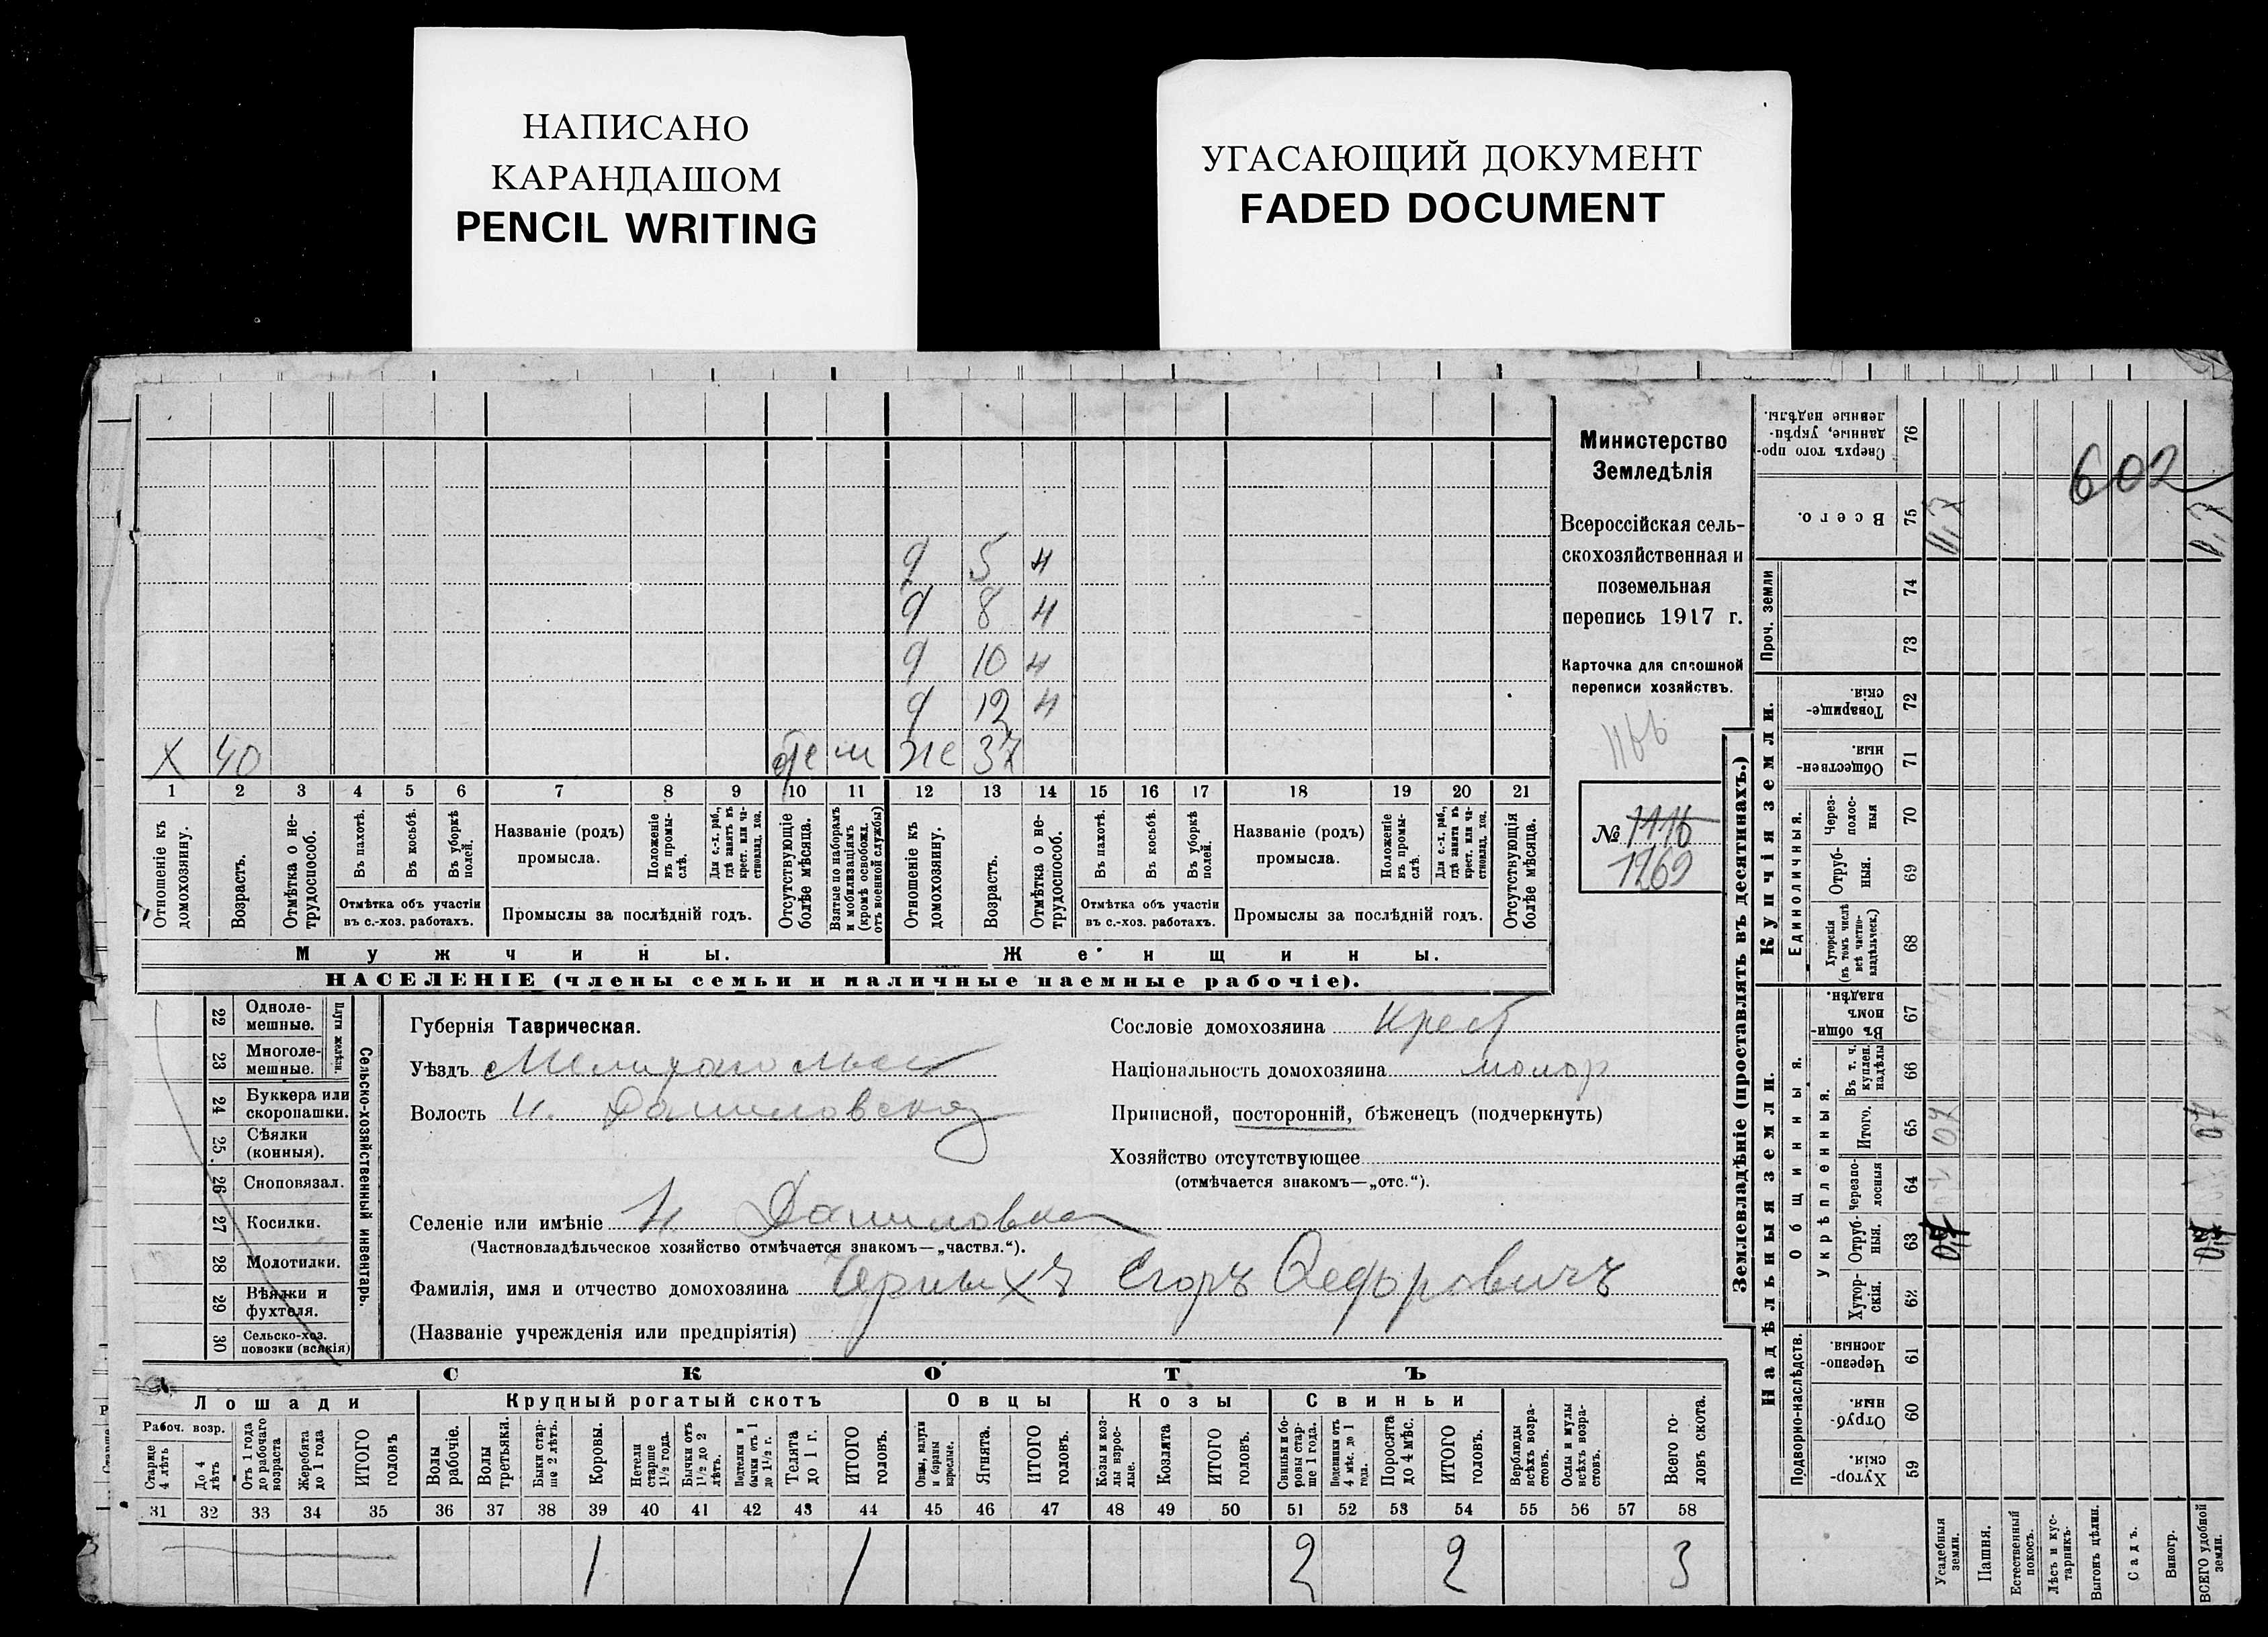 НАПИСАНО
КАРАНДАШОМ
PENCIL WRITING
УГАСАЮЩИЙ ДОКУМЕНТ
FADED DOCUMENT
Министерство
Земледѣлія
Всероссійская сель-
скохозяйственная и
поземельная
перепись 1917 г.
Карточка для сплошной
переписи хозяйствъ.
1166
№ 1116
1269
602
д 5 н
д 8 н
д 10 н
д 12 н
х 40 отс м же 37
1 2 3 4 5 6 7 8 9 10 11 12 13 14 15 16 17 18 19 20 21
Отношеніе къ домохозяину.
Возрастъ.
Отмѣтка о не-трудоспособ.
Въ пахотѣ.
Въ косьбѣ.
Въ уборкѣ полей.
Отмѣтка объ участіи
въ с.-хоз. работахъ.
Названіе (родъ)
промысла.
Положеніе въ промы-слѣ.
Для с.-х. раб., гдѣ занятъ въ крест. или ча-стновлад. хоз.
Промыслы за послѣдній годъ.
Отсутствующіе болѣе мѣсяца.
Взятые по наборамъ и мобилизаціямъ (кромѣ освобожд. отъ военной службы)
Отношеніе къ домохозяину.
Возрастъ.
Отмѣтка о не-трудоспособ.
Въ пахотѣ.
Въ косьбѣ.
Въ уборкѣ полей.
Отмѣтка объ участіи
въ с.-хоз. работахъ.
Названіе (родъ)
промысла.
Положеніе въ промы-слѣ.
Для с.-х. раб., гдѣ занятъ въ крест. или ча-стновлад. хоз.
Промыслы за послѣдній годъ.
Отсутствующія болѣе мѣсяца.
Мужчины. Женщины.
НАСЕЛЕНІЕ (члены семьи и наличные наемные рабочіе).
Сельско-хозяйственный инвентарь.
Плуги желѣзн.
22 Одноле-мешные.
23 Многоле-мешные.
24 Буккера или скоропашки.
25 Сѣялки (конныя).
26 Сноповязал.
27 Косилки.
28 Молотилки.
29 Вѣялки и фухтеля.
30 Сельско-хоз. повозки (всякія)
Губернія Таврическая.
Уѣздъ Мелитопольск
Волость Н. Даниловская
Селеніе или имѣніе Н Даниловка
(Частновладѣльческое хозяйство отмѣчается знакомъ—„частвл.“).
Фамилія, имя и отчество домохозяина Черныхъ Егоръ Федоровичъ
(Названіе учрежденія или предпріятія)
Сословіе домохозяина Крест
Національность домохозяина малор
Приписной, посторонній, бѣженецъ (подчеркнуть)
Хозяйство отсутствующее
(отмѣчается знакомъ—„отс.“).
СКОТЪ
Лошади Крупный рогатый скотъ Овцы Козы Свиньи
Рабоч. возр.
Старше 4 лѣтъ
До 4 лѣтъ
Отъ 1 года до рабочаго возраста
Жеребята до 1 года
ИТОГО головъ
Волы рабочіе.
Волы третьяки.
Быки стар-ше 2 лѣтъ.
Коровы.
Нетели старше 1½ года.
Бычки отъ 1½ до 2 лѣтъ.
Подтелки и бычки отъ 1 до 1½ г.
Телята до 1 г.
ИТОГО головъ.
Овцы, валухи и бараны взрослые.
Ягнята.
ИТОГО головъ.
Козы и коз-лы взрос-лые.
Козлята
ИТОГО головъ.
Свиньи и бо-ровы стар-ше 1 года.
Подсвинки отъ 4 мѣс. до 1 года.
Поросята до 4 мѣс.
ИТОГО головъ.
Верблюды всѣхъ возра-стовъ.
Ослы и мулы всѣхъ возра-стовъ.
Всего го-ловъ скота.
31 32 33 34 35 36 37 38 39 40 41 42 43 44 45 46 47 48 49 50 51 52 53 54 55 56 57 58
1 1 2 2 3
Землевладѣніе (проставлять въ десятинахъ.)
Надѣльныя земли.
Купчія земли.
Проч. земли
Подворно-наслѣдств.
Общинныя.
Укрѣпленныя.
Единоличныя.
Сверхъ того про-данные, укрѣп-ленные надѣлы. 76
Всего. 75
74
73
Товарище-скія. 72
Обществен-ныя. 71
Через-полос-ныя 70
Отруб-ныя. 69
Хуторскія (въ томъ числѣ всѣ частно-владѣльческ.) 68
Въ общин-номъ владѣн. 67
Въ т. ч. куплен. надѣлы 66
Итого. 65
Черезпо-лосныя 64
Отруб-ныя. 63
Хутор-скія. 62
Черезпо-лосныя 61
Отруб-ныя. 60
Хутор-скія. 59
Усадебныя земли.
Пашня.
Естественный покосъ.
Лѣсъ и кус-тарникъ.
Выгонъ цѣлин.
Садъ.
Виногр.
ВСЕГО удобной земли.